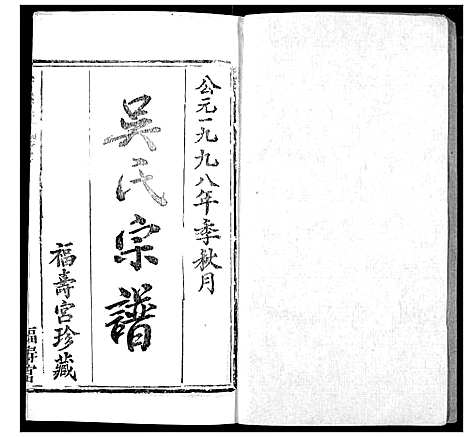 公元一九九八年季秋月
吳氏宗譜
福壽宮珍藏
福壽宮